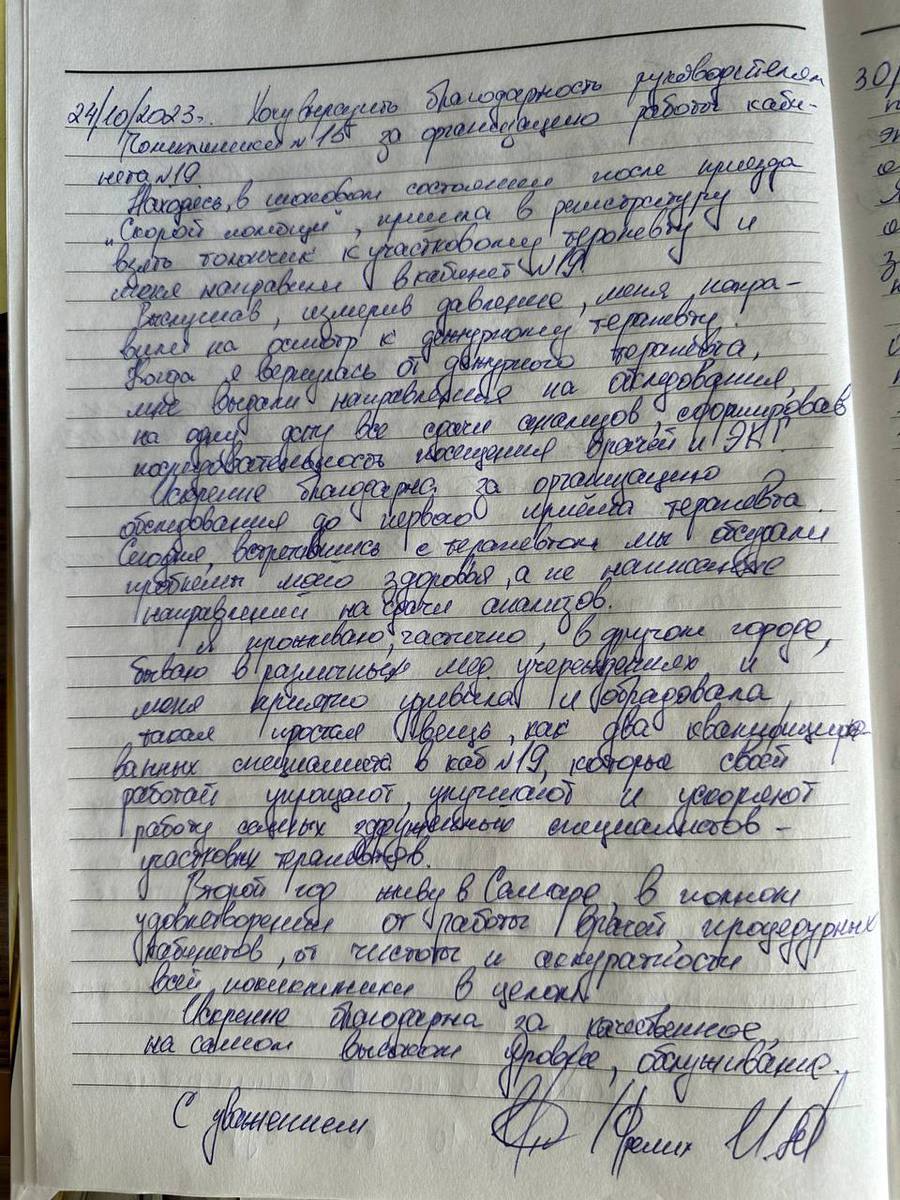 24/10/2023г. Хочу выразить благодарность руководителям
Поликлиники №15 за организацию работы каби-
нета №19
Находясь, в шоковом состоянии после приезда
"Скорой помощи", пришла в регистратуру
взять талончик к участковому терапевту и
меня направили в кабинет №19.
Выслушав, измерив давление, меня напра-
вили на осмотр к дежурному терапевту.
Когда я вернулась от дежурного терапевта,
мне выдали направления на обследования,
на одну дату все сдачи анализов, сформировав
последовательность посещения врачей и ЭКГ.
Искренне благодарна за организацию
обследования до первого приёма терапевта.
Сегодня, встретившись с терапевтом мы обсудили
проблемы моего здоровья, а не написание
направлений на сдачи анализов.
Я проживаю, частично, в другом городе,
бываю в различных мед. учереждениях и
меня приятно удивила и обрадовала
такая простая вещь, как два квалифициро-
ванных специалиста в каб №19, которые своей
работай упрощают, улучшают и ускоряют
работу самых специалистов -
участковых терапевтов.
Второй год живу в Самаре, в полном
удовлетворении от работы врачей, процедурных
кабинетов, от чистоты и аккуратности
всей поликлиники в целом.
Искренне благодарна за качественное,
на самом высоком уровне, обслуживание.
С уважением